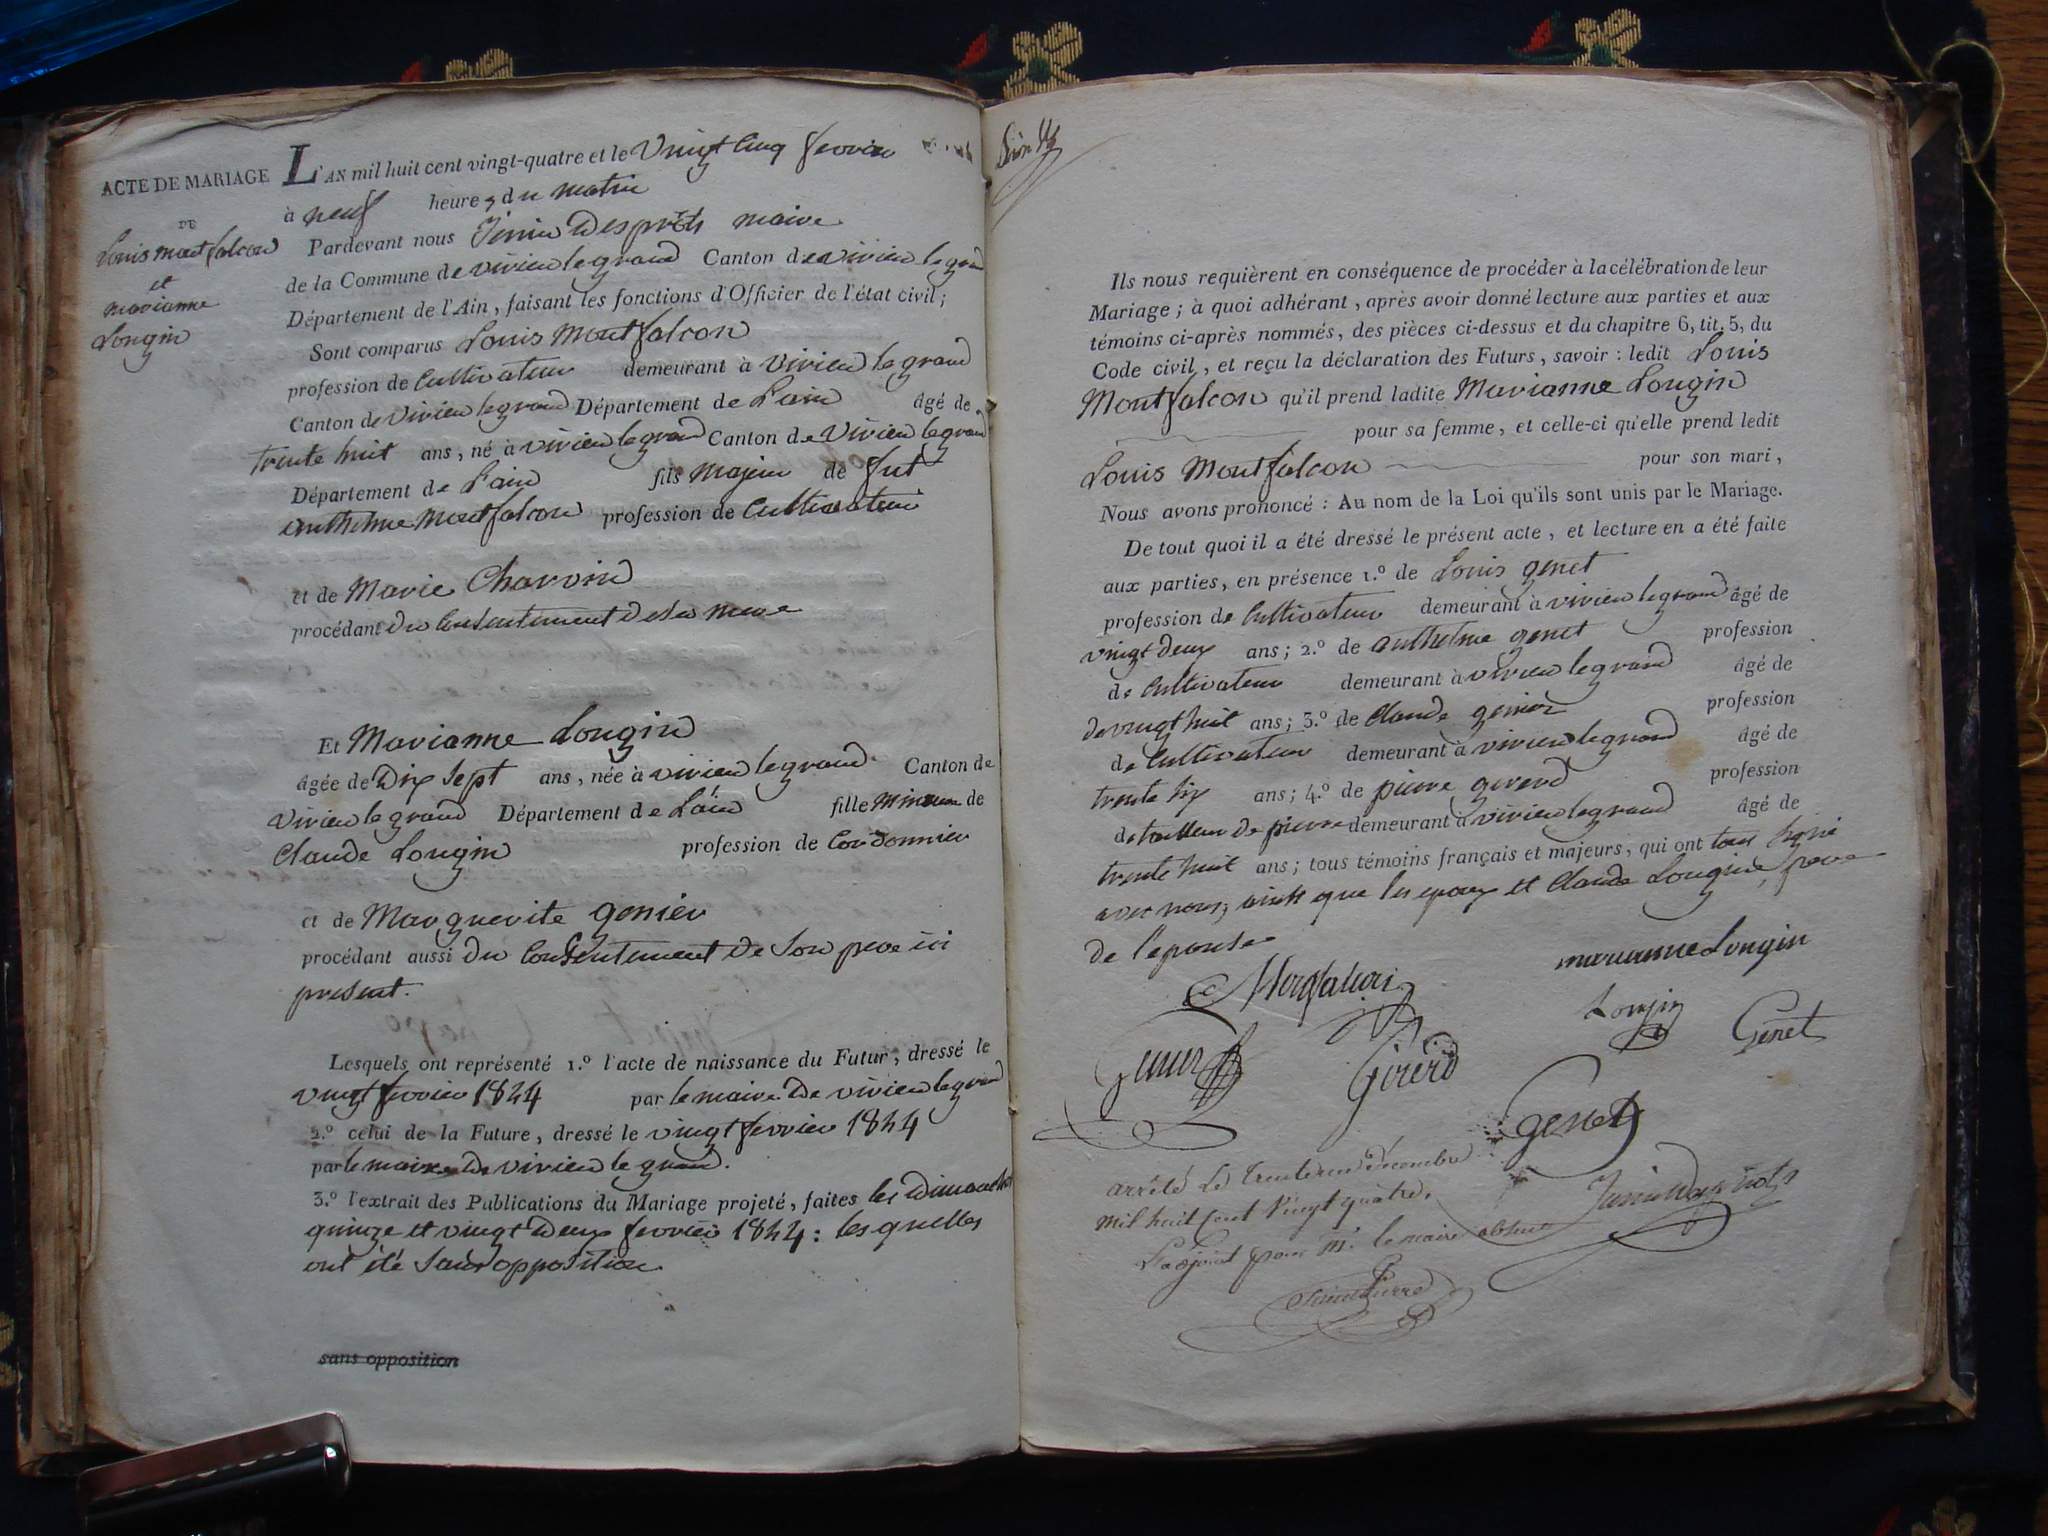 ACTE DE MARIAGE
DE
Louis montfalcon
et
marianne
Longin
L'AN mil huit cent vingt-quatre et le Vingt cinq fevrier
à neuf heures du matin
Pardevant nous maire
de la Commune de vivieu le grand Canton de vivieu le grand
Département de l'Ain, faisant les fonctions d'Officier de l'état civil;
Sont comparus Louis Montfalcon
profession de Cultivateur demeurant à vivieu le grand
Canton de vivieu le grand Département de L'ain âgé de
trente huit ans, né à vivieu le grand Canton de vivieu le grand
Département de L'ain fils majeur de fut
anthelme Montfalcon profession de Cultivateur
et de Marie Charvin
procédant du Consentement de sa mere
Et Marianne Longin
âgée de Dix sept ans, née à vivieu le grand Canton de
vivieu le grand Département de L'ain fille mineure de
Claude Longin profession de Cordonnier
et de Marguerite genier
procédant aussi du Consentement de son pere ici
present.
Lesquels ont représenté 1.º l'acte de naissance du Futur, dressé le
vingt fevrier 1824 par le maire de vivieu le grand
2.º celui de la Future, dressé le vingt fevrier 1824
par le maire de vivieu le grand.
3.º l'extrait des Publications du Mariage projeté, faites les Dimanches
quinze et vingt Deux fevrier 1824 : les quelles
ont été sans opposition
sans opposition
Ils nous requièrent en conséquence de procéder à la célébration de leur
Mariage; à quoi adhérant, après avoir donné lecture aux parties et aux
témoins ci-après nommés, des pièces ci-dessus et du chapitre 6, tit. 5, du
Code civil, et reçu la déclaration des Futurs, savoir : ledit Louis
Montfalcon qu'il prend ladite Marianne Longin
pour sa femme, et celle-ci qu'elle prend ledit
Louis Montfalcon pour son mari,
Nous avons prononcé : Au nom de la Loi qu'ils sont unis par le Mariage.
De tout quoi il a été dressé le présent acte, et lecture en a été faite
aux parties, en présence 1.º de Louis genet
profession de Cultivateur demeurant à vivieu le grand âgé de
vingt deux ans; 2.º de anthelme genet profession
de Cultivateur demeurant à vivieu le grand âgé de
de vingt huit ans; 3.º de Claude genier profession
de Cultivateur demeurant à vivieu le grand âgé de
trente six ans; 4.º de pierre girerd profession
de tailleur de pierre demeurant à vivieu le grand âgé de
trente huit ans; tous témoins français et majeurs, qui ont tous signé
avec nous, ainsi que les epoux et Claude Longin, pere
de l'epouse
marianne Longin
Longin
Genet
Girerd
Genet
arrêté le trente un décembre
mil huit cent vingt quatre,
L'adjoint pour Mr. le maire absent